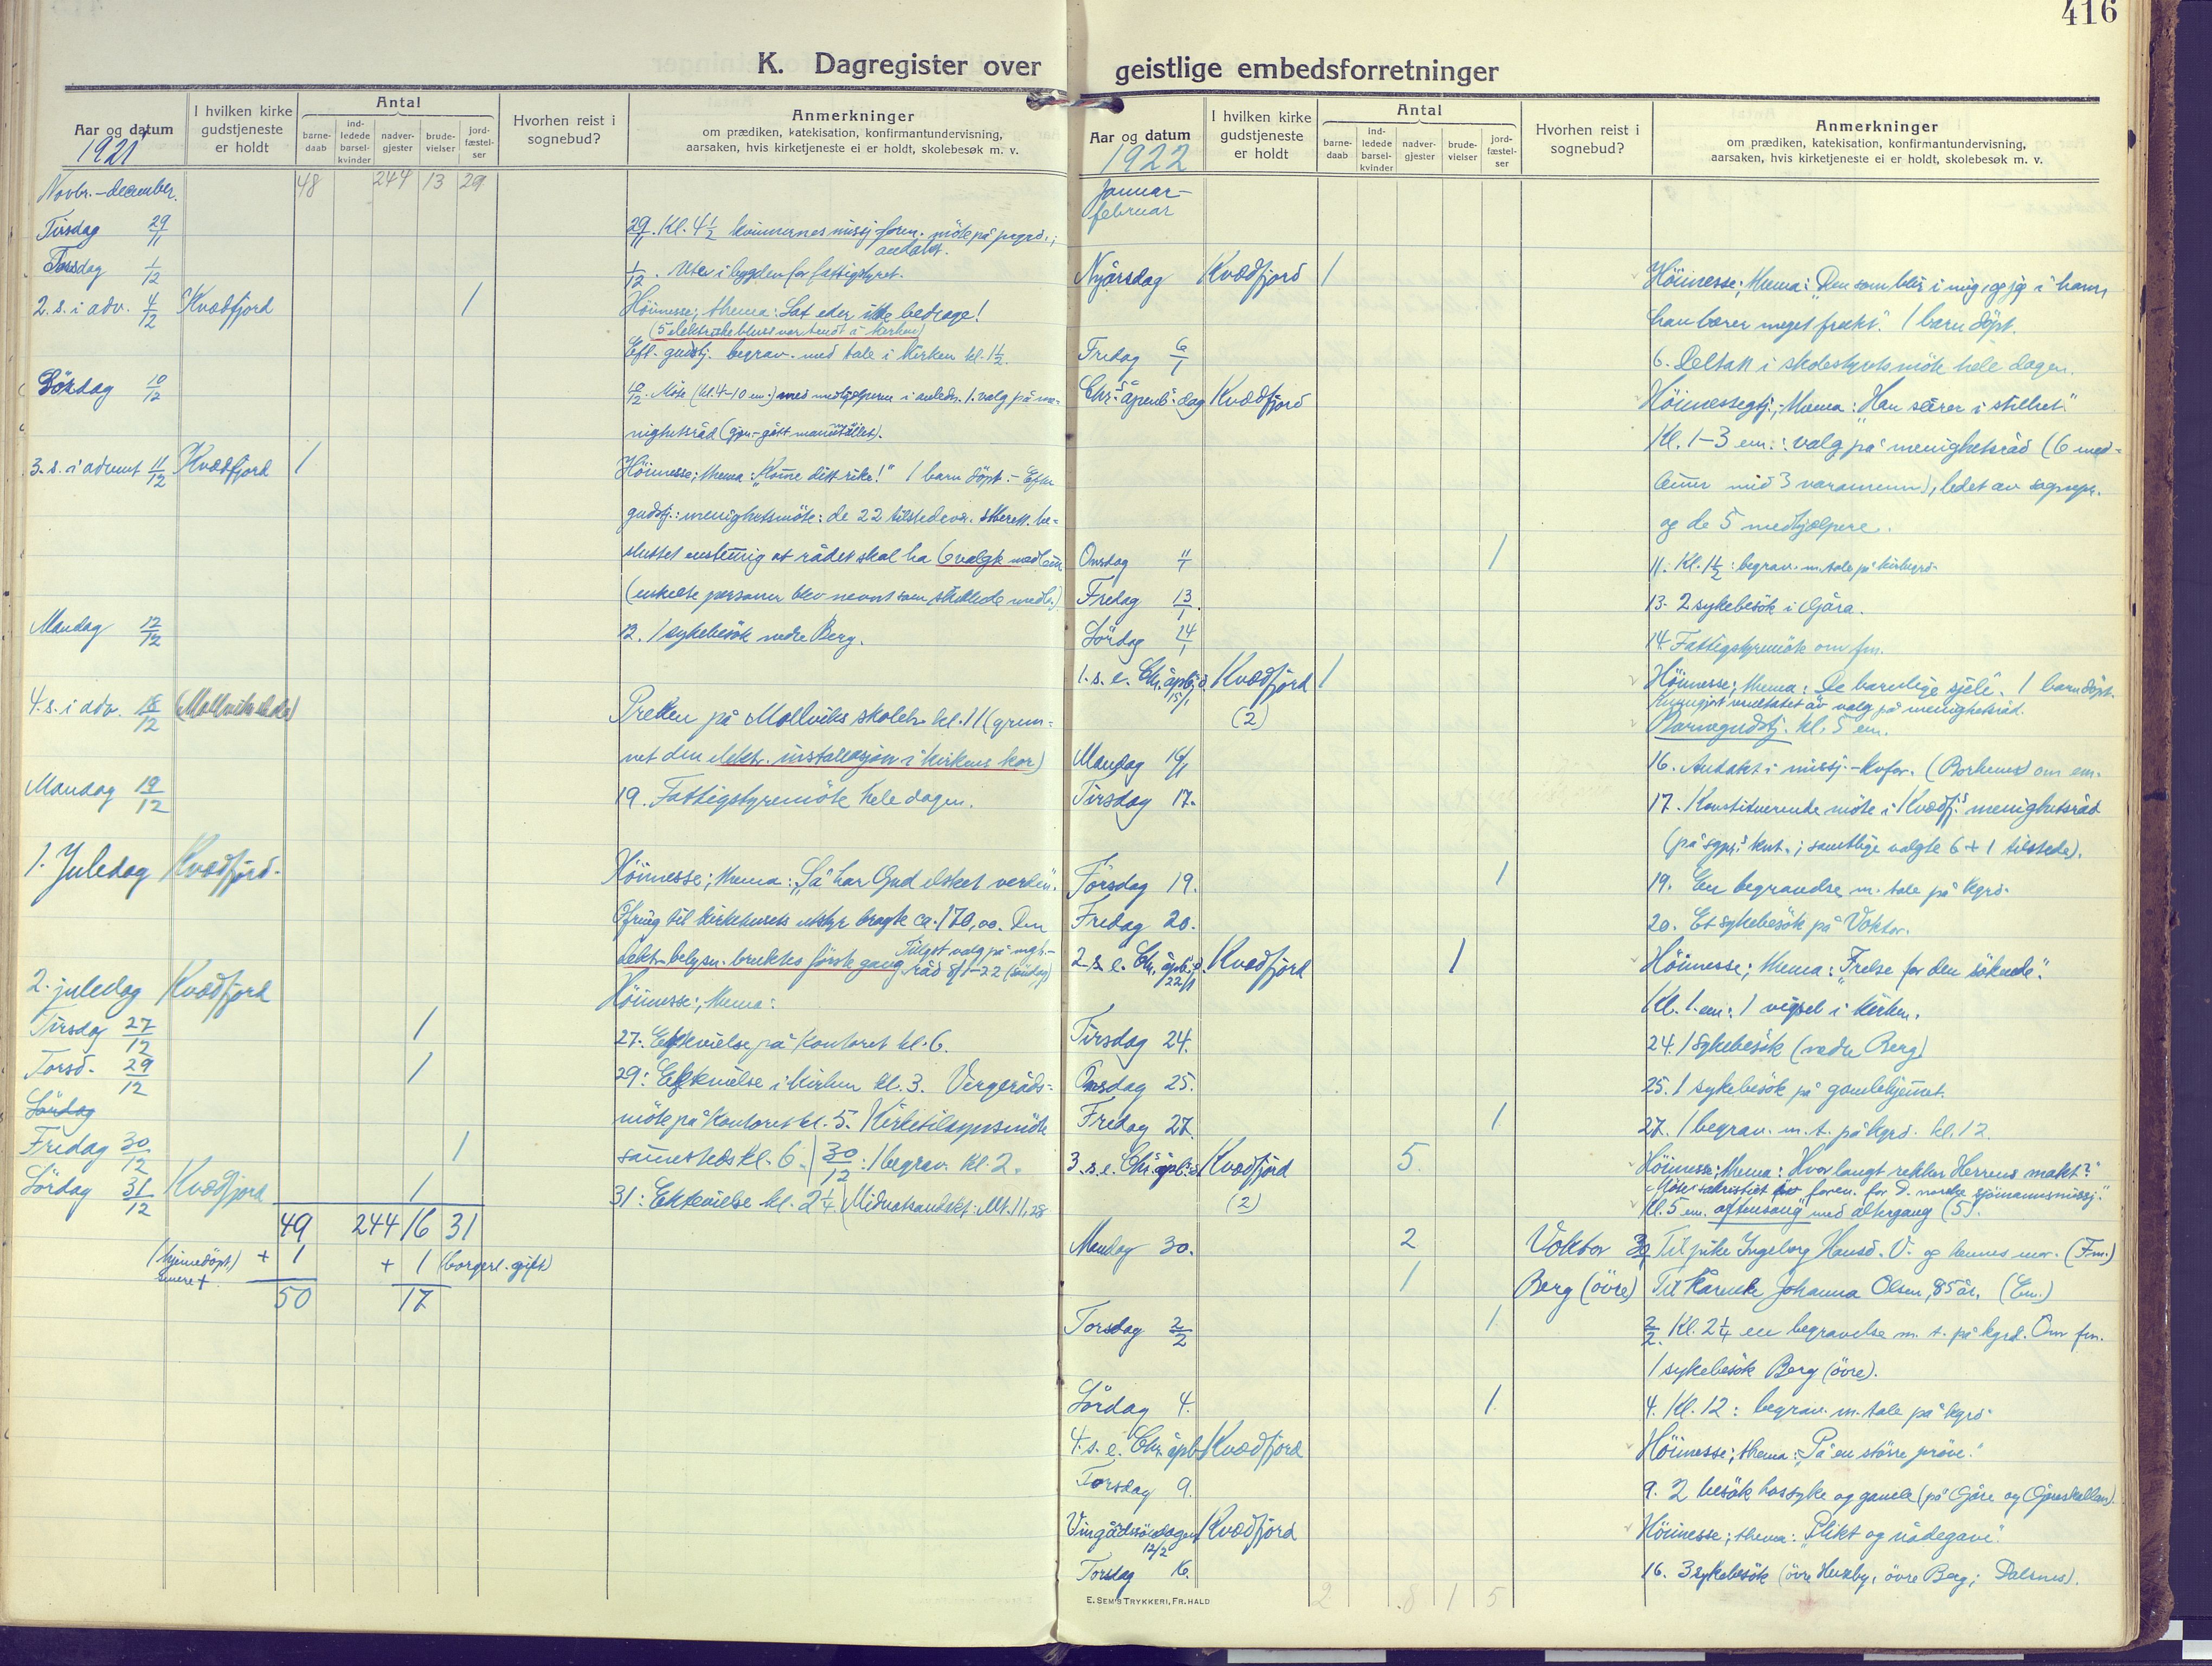 416
K. Dagregister over geistlige embedsforretninger
Aar og datum
1921
I hvilken kirke gudstjeneste er holdt
Antal
barne-daab
ind-ledede barsel-kvinder
nadver-gjester
brude-vielser
jord-fæstel-ser
Hvorhen reist i sognebud?
Anmerkninger
om prædiken, katekisation, konfirmantundervisning,
aarsaken, hvis kirketjeneste ei er holdt, skolebesøk m. v.
Novbr.-december. 48 244 13 29
Tirsdag 29/11 29/11. Kl. 4 1/2 kvinnernes missj. foren. møte på prgrd.;
andakt.
Torsdag 1/12 1/12. Ute i bygden for fattigstyret.
2. s. i adv. 4/12 Kvædfjord 1 Höimesse; thema: Lat eder ikke bedrage!
(5 elektriske bluss var tendt i kirken)
Eft. gudstj. begrav. med tale i kirken kl. 1 1/2.
Lördag 10/12 10/12. Möte (kl. 4-10 em.) med medhjelperne i anledn. 1. valg på me-
nighetsråd (gjen-gått manntallet).
3. s. i advent 11/12 Kvædfjord 1 Höimesse; thema: "Komme ditt rike!" 1 barn döpt. - Efter
gudstj.: menighetsmöte: de 22 tilstedevær. stberett. be-
sluttet enstemmig at rådet skal ha 6 valgte medlem.
(enkelte personer blev nevnt som skikkede medl.)
Mandag 12/12 12. 1 sykebesök nedre Berg.
4. s. i adv. 18/12 (Mollvik skole) Preken på Mollviks skoleh. kl. 11 (grun-
net den elektr. installasjon i kirkens kor)
Mandag 19/12 19. Fattigstyremöte hele dagen.
1. Juledag Kvædfjord. Höimesse; thema: "Så har Gud elsket verden".
Ofring til kirkehusets utstyr bragte ca. 170,00. Den
elektr. belysn. bruktes förste gang. Tillyst valg på mght.-
råd 8/1-22 (söndag)
2. juledag Kvædfjord Höimesse; thema:
Tirsdag 27/12 1 27. Ektevielse på kontoret kl. 6.
Torsd. 29/12 1 29: Ektevielse i kirken kl. 3. Vergeråds-
Lördag
möte på kontoret kl. 5. Kirketilsynsmöte
Fredag 30/12 1 sammesteds kl. 6. 30/12: 1 begrav. kl. 2.
Lördag 31/12 Kvædfjord 1 31: Ektevielse kl. 2 1/4 (Midnatsandakt: Mt. 11, 28
49 244 16 31
(hjemedöpt) + 1 + 1 (borgerl. gift)
senere +
50 17
Aar og datum
1922
I hvilken kirke gudstjeneste er holdt
Antal
barne-daab
ind-ledede barsel-kvinder
nadver-gjester
brude-vielser
jord-fæstel-ser
Hvorhen reist i sognebud?
Anmerkninger
om prædiken, katekisation, konfirmantundervisning,
aarsaken, hvis kirketjeneste ei er holdt, skolebesøk m. v.
Januar-
februar
Nyårsdag Kvædfjord 1 Höimesse; thema: "Den som blir i mig, og jeg i ham,
han bærer meget frukt". 1 barn döpt.
Fredag 6/1 6. Deltatt i skolestyrets möte hele dagen.
Chr. åpenb. dag Kvædfjord Höimessegtj.; thema: "Han seirer i stillhet."
Kl. 1-3 em.: valg på menighetsråd (6 med-
lemmer med 3 varamenn), ledet av sognepr.
og de 5 medhjælpere.
Onsdag 11/1 1 11. Kl. 1 1/2: begrav. m. tale på kirkegrd.
Fredag 13/1. 13. 2 sykebesök i Gjåra.
Lördag 14/1 14. Fattigstyremöte om fm.
1. s. e. Chr. åpb.d. 15/1 Kvædfjord (2) 1 Höimesse; thema: "De barnlige sjele". 1 barn döpt.
Kunngjort resultatet av valg på menighetsråd.
Barnegudstj. kl. 5 em.
Mandag 16/1 16. Andakt i missj.-kvfor. (Borkenes) om em.
Tirsdag 17. 17. Konstituerende möte i Kvædfj.s menighetsråd
(på sgpr.s knt.; samtlige valgte 6 + 1 tilstede).
Torsdag 19. 1 19. En begravelse m. tale på kgrd.
Fredag 20. 20. Et sykebesök på Voktor.
2. s. e. Chr. åpb.d. 22/1 Kvædfjord 1 Höimesse; thema: "Frelse for den sökende".
Kl. 1. em: 1 vigsel i kirken.
Tirsdag 24. 24. 1 sykebesök (nedre Berg)
Onsdag 25. 25. 1 sykebesök på gamlehjemmet.
Fredag 27. 1 27. 1 begrav. m. t. på kgrd. kl. 12.
3. s. e. Chr. åpb.d. Kvædfjord (2) 5. Höimesse; thema: "Hvor langt rekker Herrens makt?"
Möte i sakristiet foren. for D. norske sjömannsmissj."
Kl. 5 em. aftensang med altergang (5).
Mandag 30. 2 Voktor 30. Til pike Ingeborg Hansd. V. og hennes mor. (Fm.)
1 Berg (övre) Til kårenke Johanna Olsen, 85 år. (Em.)
Torsdag 2/2 1 2/2. Kl. 2 1/4 en begravelse m. t. på kgrd. Om fm.
1 sykebesök Berg (övre).
Lördag 4. 1 4. Kl. 12: begrav. m. tale på kgrd.
4. s. e. Chr. åpb. Kvædfjord Höimesse; thema: "På en större pröve."
Torsdag 9. 9. 2 besök hos syke og gamle (på Gjåre og
Vingårdssöndagen 12/2 Kvædfjord Höimesse; thema: "Plikt og nådegave".
Torsdag 16. 16. 3 sykebesök (övre Husby, övre Berg; Dalsnes).
2 8 1 5
E. SEM'S TRYKKERI, FR.HALD